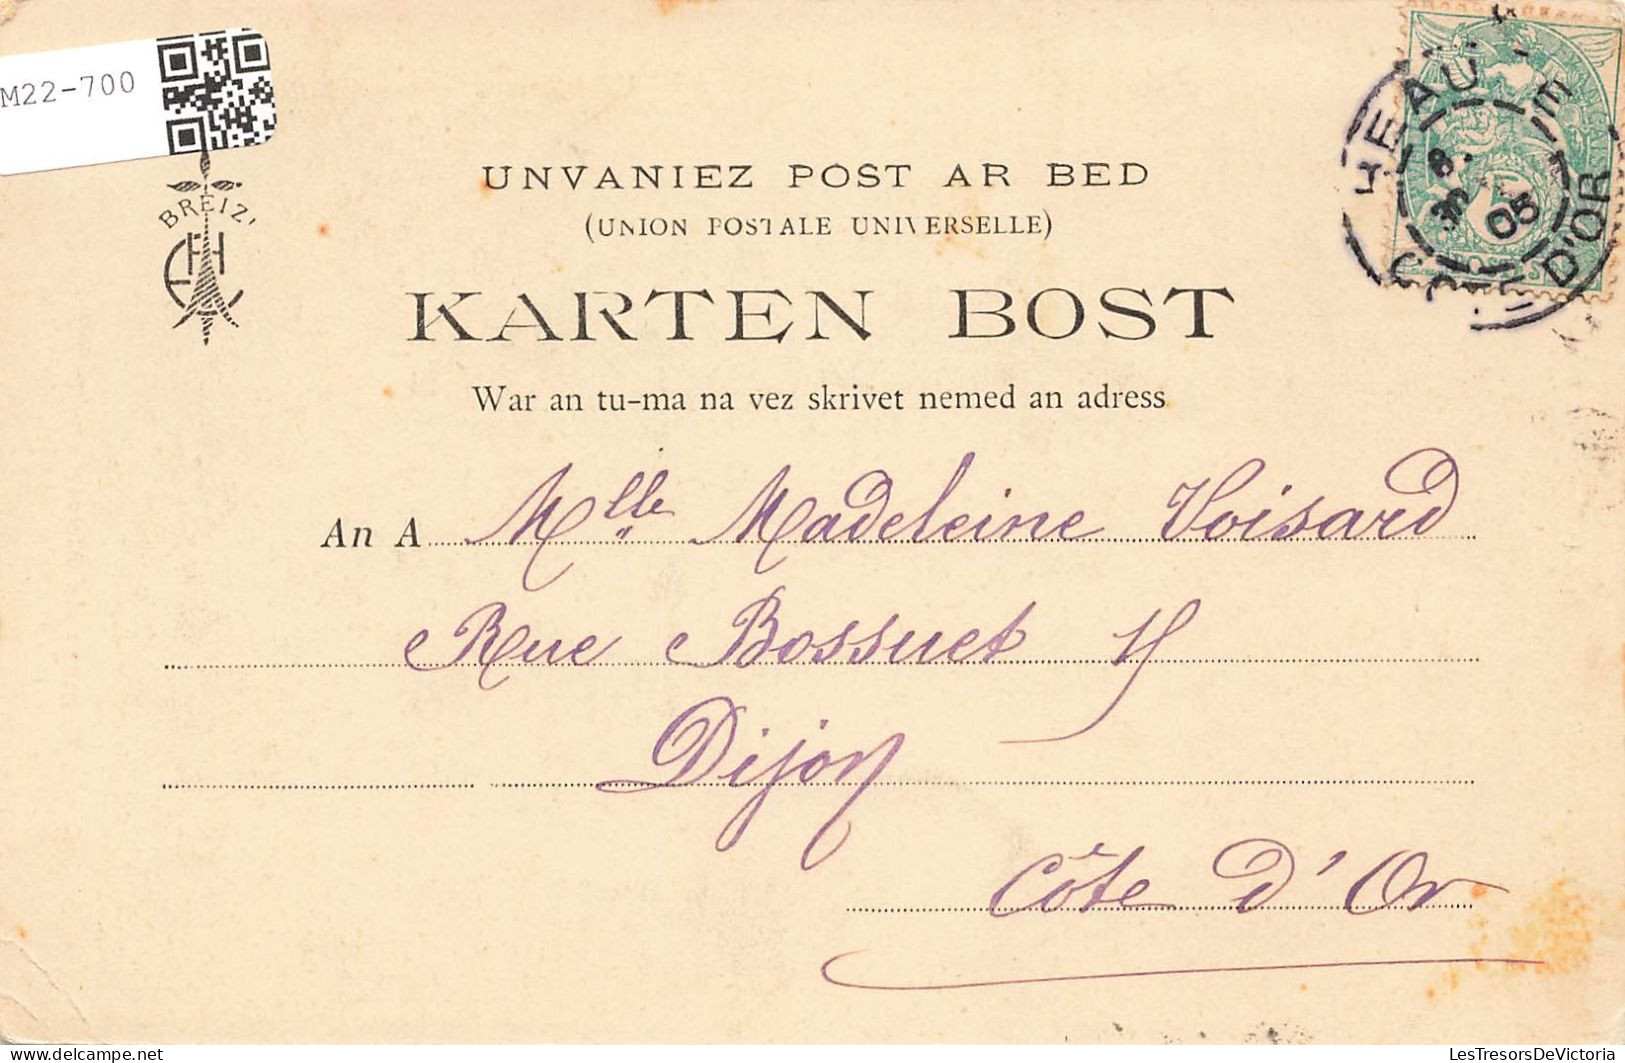 M22-700
BREIZ
UNVANIEZ POST AR BED
(UNION POSTALE UNIVERSELLE)
KARTEN BOST
War an tu-ma na vez skrivet nemed an adress
An A Mlle Madeleine Voisard
Rue Bossuet
Dijon
Côte d'Or
D'OR
05
LesTresorsDeVictoria